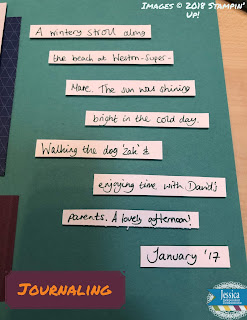 Images © 2018 Stampin'
Up!
A wintery stroll along
the beach at Weston-Super-
Mare. The sun was shining
bright in the cold day.
Walking the dog 'Zak' &
enjoying time with David's
parents. A lovely afternoon!
January '17
Journaling
Jessica